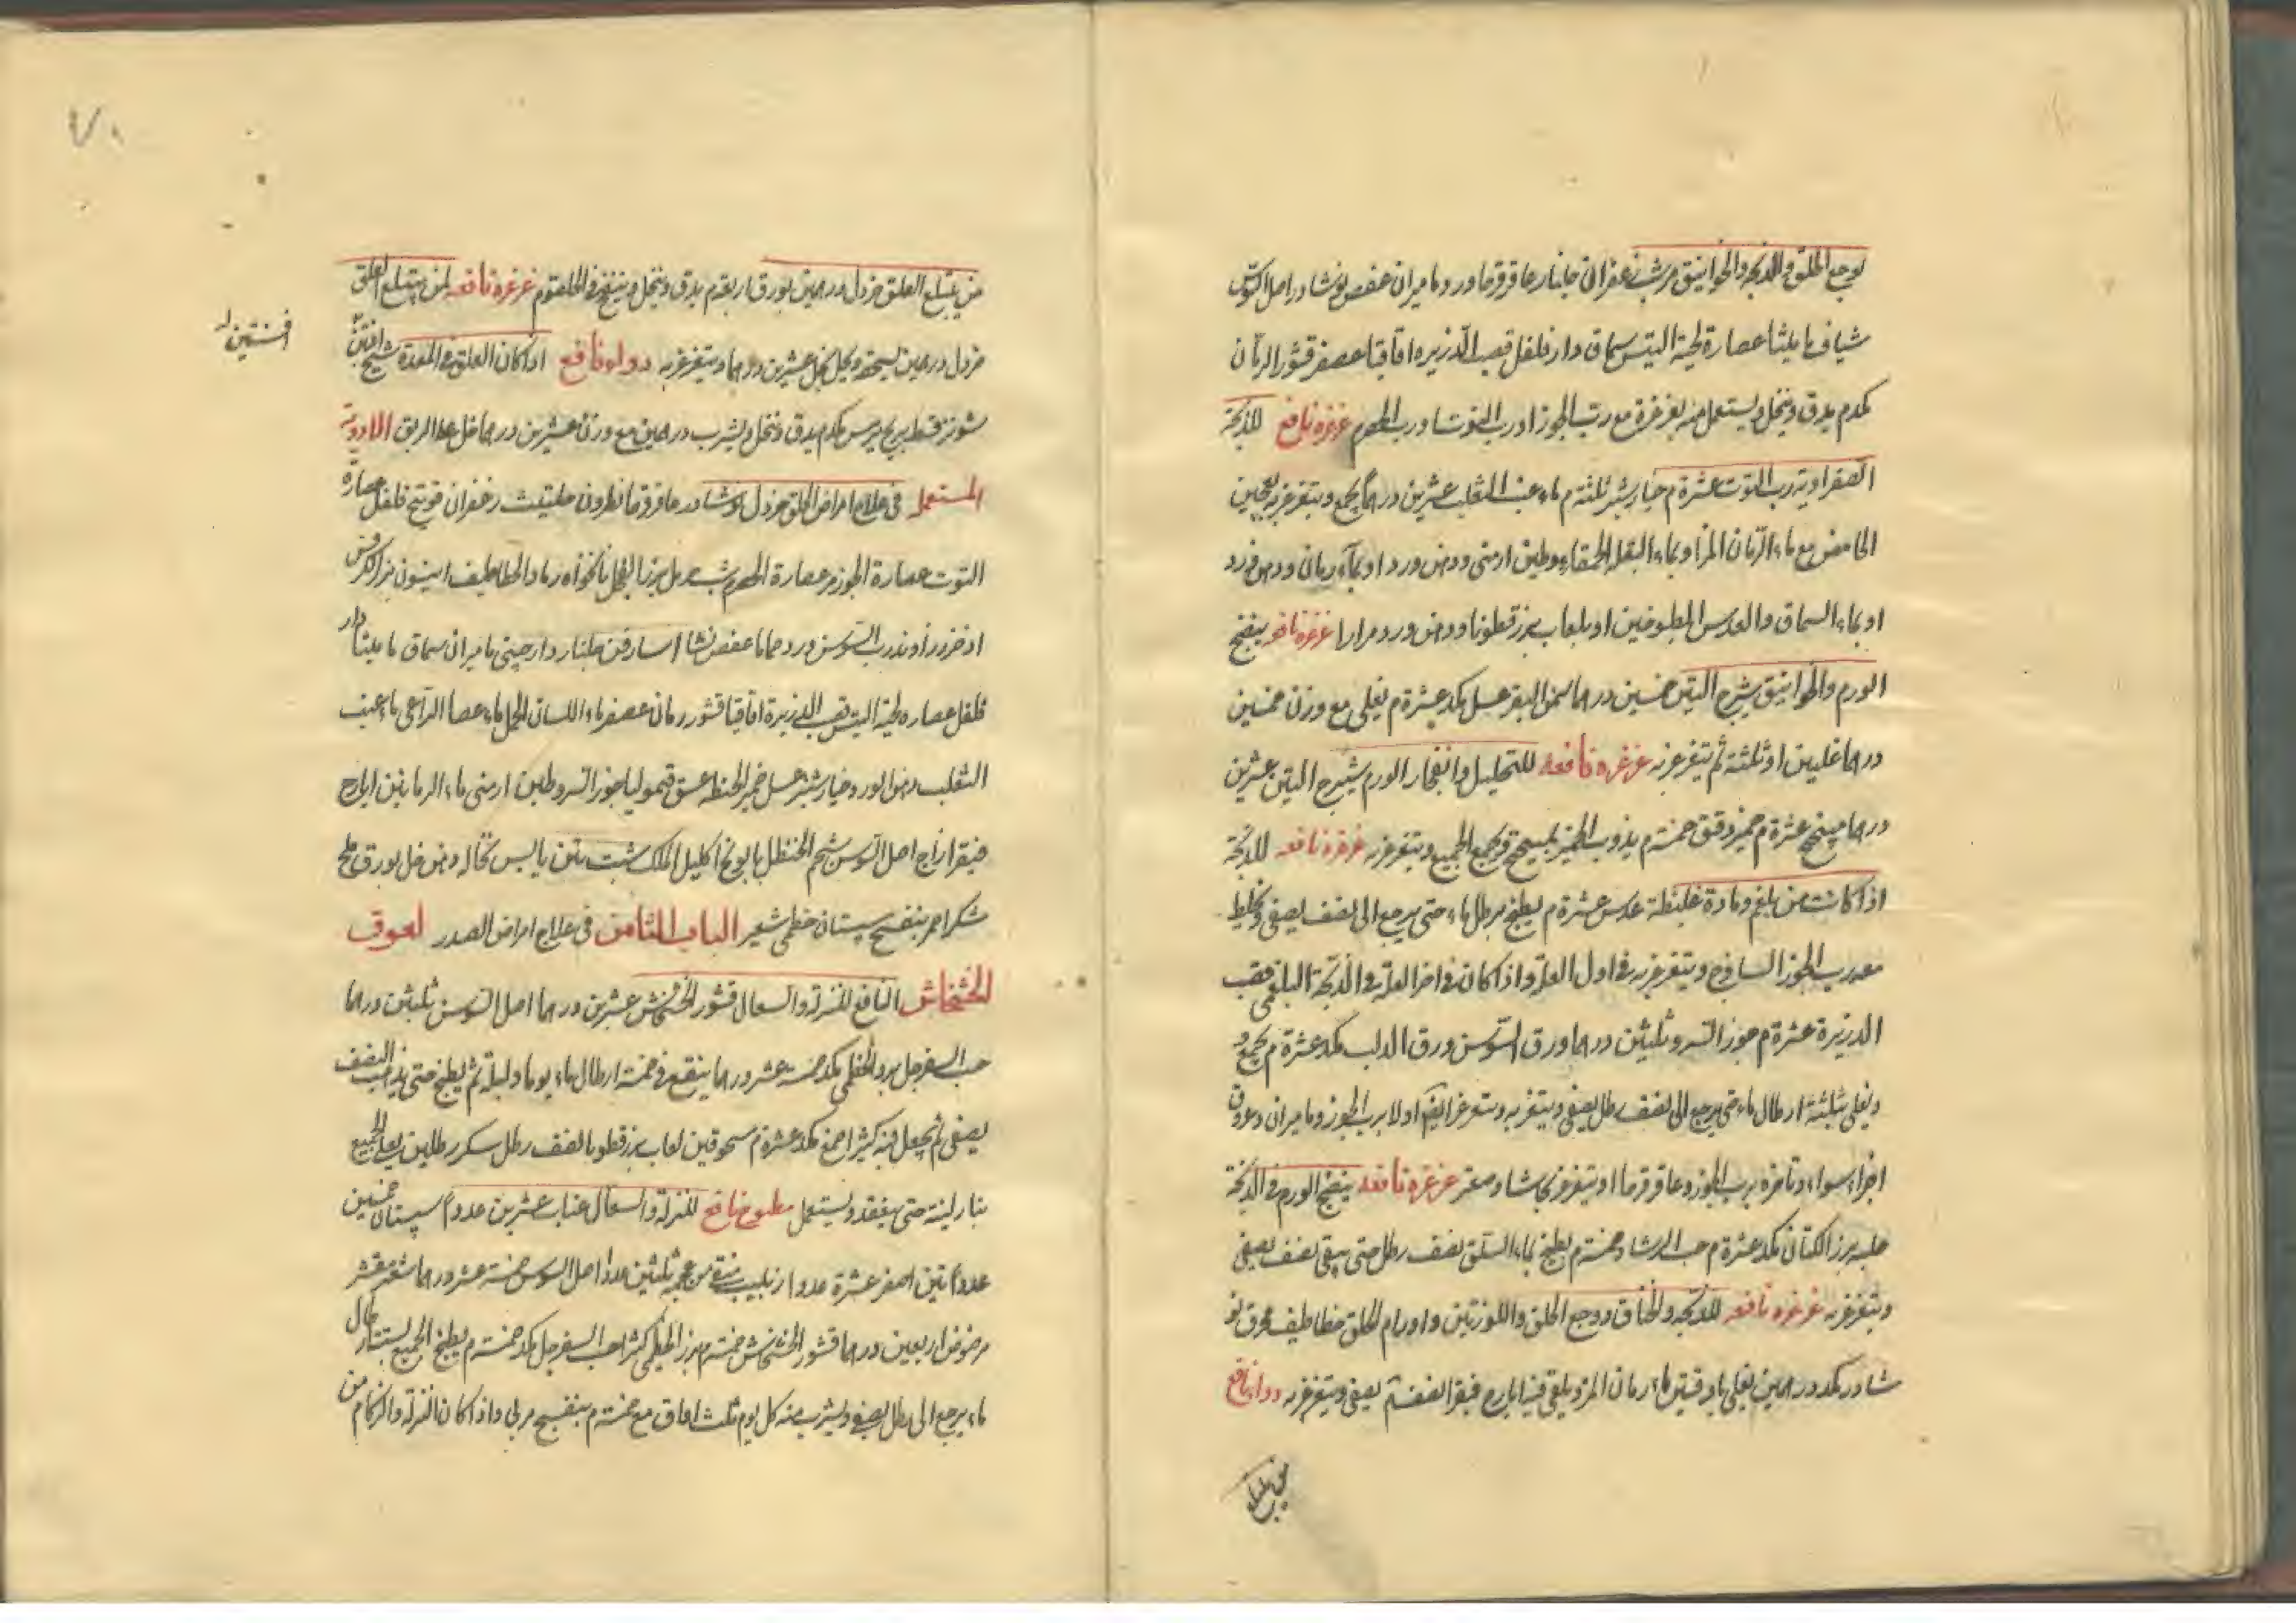 لوجع الحلق والذبحة والخوانيق مر شب زعفران جلنار عاقرقرحا ورد ماميران عفص نوشادر اصل السوس
شياف ماميثا عصارة لحية التيس سماق دارفلفل قصب الذريره اقاقيا عصفر قشور الرمان
كدم يدق وينخل ويستعمل منه بغرغرة مع رب الجوز او رب التوت او رب الحصرم غرغره نافع للذبحة
الصفراوية رب التوت عشرة م خيارشنبر ثلثة م ماء عنب الثعلب عشرين درهما يجمع ويتغرغر به
الحامض مع ماء الرمان المز او بماء البقلة الحمقاء وطين ارمنى ودهن ورد او بماء رمان ودهن ورد
او بماء السماق والعدس المطبوخين او بلعاب بزرقطونا ودهن ورد مرارا غرغره نافعه ينضج
الورم والخوانيق يشرح التين خمسين درهما سمن البقر عسل مكد عشرة م يغلى مع وزن خمسين
درهما غليين او ثلثة ثم يتغرغر به غرغره نافعه للتحليل وانفجار الورم يشرح التين عشرين
درهما عشرة م خمير خمسة م يذوب الخمير ويجمع الجميع ويتغرغر به غرغره نافعه للذبحة
اذا كانت من بلغم ومادة غليظة عدس عشرة م يطبخ برطل ماء حتى يرجع الى نصف يصفى ويخلط
معه رب الجوز الساذج ويتغرغر به فى اول العلة واذا كان فى اخر العلة فى الذبحة البلغمى قصب
الذريرة عشرة م جوز السرو ثلثين درهما ورق السوسن ورق الدلب مكد عشرة م يجمع
ويغلى بثلثة ارطال ماء حتى يرجع الى نصف رطل يصفى ويتغرغر به ويتغرغر ايضا اولا برب الجوز وماميران وعروق
اجزاء سواء وتاخرة برب الجوز وعاقرقرحا او يتغرغر بحاشا وصعتر غرغره نافعه ينضج الورم فى الذبحة
حلبه بزر الكتان مكد عشرة م حب الرشاد خمسة م يطبخ بماء السلق نصف رطل حتى يبقى نصف يصفى
ويتغرغر به غرغره نافعه للذبحه والخناق ووجع الحلق واللوزتين واورام الحلق خطاطيف محرق نو
شادر مكد درهمين يغلى باوقيتين ماء رمان المز ويلقى فيه ايارج فيقرا نصف م يصفى ويتغرغر به دواء نافع
من يبتلع العلق خردل درهمين بورق اربعة م يدق وينخل وينفخ فى الحلقوم غرغره نافعه لمن يبتلع العلق
خردل درهمين يسحق ويحل بخل عشرين درهما ويتغرغر به دواء نافع اذا كان العلق فى المعدة شيح افسنتين
افسنتين
شونيز قسط ترمس مكدم يدق وينخل ويشرب درهمين مع وزن عشرين درهما خل على الريق الادوية
المستعمل فى علاج امراض الحلق خردل نوشادر عاقرقرحا نطرون حلتيت زعفران فوتنج فلفل عصارة
التوت عصارة الجوز مر عصارة الحصرم شب حرمل بزر الفجل نانخواه رماد الخطاطيف انيسون بزر الكرفس
اذخر زراوند رب السوس ورد حماما عفص نشا اسارون جلنار دارچينى ماميران سماق ماميثا دار
فلفل عصاره لحية التيس قصب الذريرة اقاقيا قشور رمان عصفر ماء اللسان الحمل ماء عصا الراعى ماء عنب
الثعلب دهن الورد خيارشنبر عسل خمير الحنطه قيموليا جوز السرو طين ارمنى ماء الرمانين ايارج
فيقرا زاج اصل السوس شحم الحنظل بابونج اكليل الملك شبت تين يابس نخاله دهن خل بورق ملح
شكر احمر بنفسج سپستان خطمى شعير الباب الثامن فى علاج امراض الصدر لعوق
الخشخاش النافع للنزلة والسعال قشور الخشخاش عشرين درهما اصل السوس ثلثين درهما
حب السفرجل بزر الخطمى مكد خمسة عشر درهما ينقع فى خمسة ارطال ماء يوما وليلة ثم يطبخ حتى يذهب النصف
يصفى ثم يجعل فيه كثيرا صمغ مكد عشرة م مسحوقين لعاب بزرقطونا نصف رطل سكر رطلين يعلى الجميع
بنار لينة حتى ينعقد ويستعمل مطبوخ نافع للنزلة والسعال عناب عشرين عددا سپستان خمسين
عددا تين اصفر عشرة عددا زبيب منقى من عجمه ثلثين عددا اصل السوس خمسة عشر درهما شعير مقشر
مرضوض اربعين درهما قشور الخشخاش خمسة م بزر الخطمى كثيرا حب السفرجل مكد خمسة م يطبخ الجميع بستة ارطال
ماء يرجع الى رطل يصفى ويشرب منه كل يوم ثلث اواق مع خمسة م بنفسج مربى واذا كان النزلة والزكام من